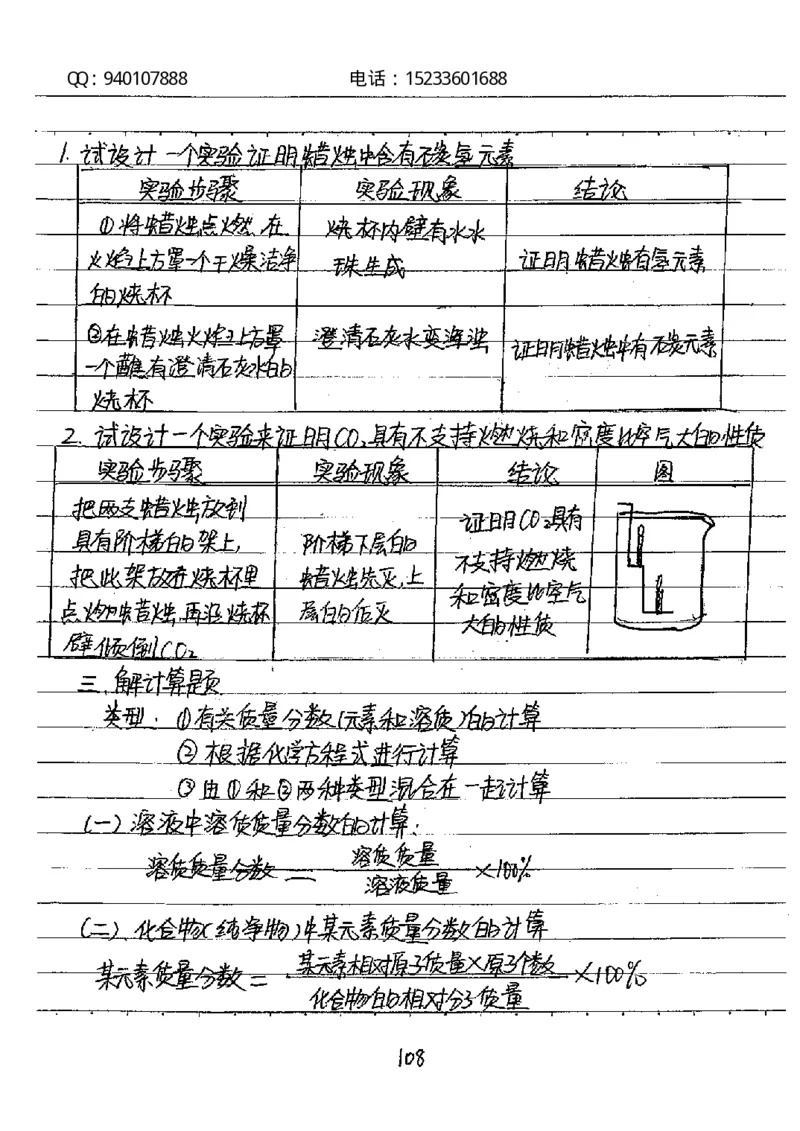 QQ：940107888 电话：15233601688
1. 试设计一个实验证明蜡烛中含有碳氢元素
实验步骤 实验现象 结论
①将蜡烛点燃、在 烧杯内壁有水水
火焰上方罩一个干燥洁净 珠生成 证明蜡烛有氢元素
的烧杯
②在蜡烛火焰上方罩 澄清石灰水变浑浊 证明蜡烛中有碳元素
一个蘸有澄清石灰水的
烧杯
2. 试设计一个实验来证明CO₂具有不支持燃烧和密度比空气大的性质
实验步骤 实验现象 结论 图
把两支蜡烛放到 证明CO₂具有
具有阶梯的架上， 阶梯下层的 不支持燃烧
把此架放在烧杯里 蜡烛先灭，上 和密度比空气
点燃蜡烛，再沿烧杯 层的后灭 大的性质
壁倾倒CO₂
三、解计算题
类型：①有关质量分数(元素和溶质)的计算
②根据化学方程式进行计算
③由①和②两种类型混合在一起计算
(一)溶液中溶质质量分数的计算：
溶质质量分数 = 溶质质量 / 溶液质量 ×100%
(二)、化合物(纯净物)中某元素质量分数的计算
某元素质量分数 = 某元素相对原子质量×原子个数 / 化合物的相对分子质量 ×100%
108